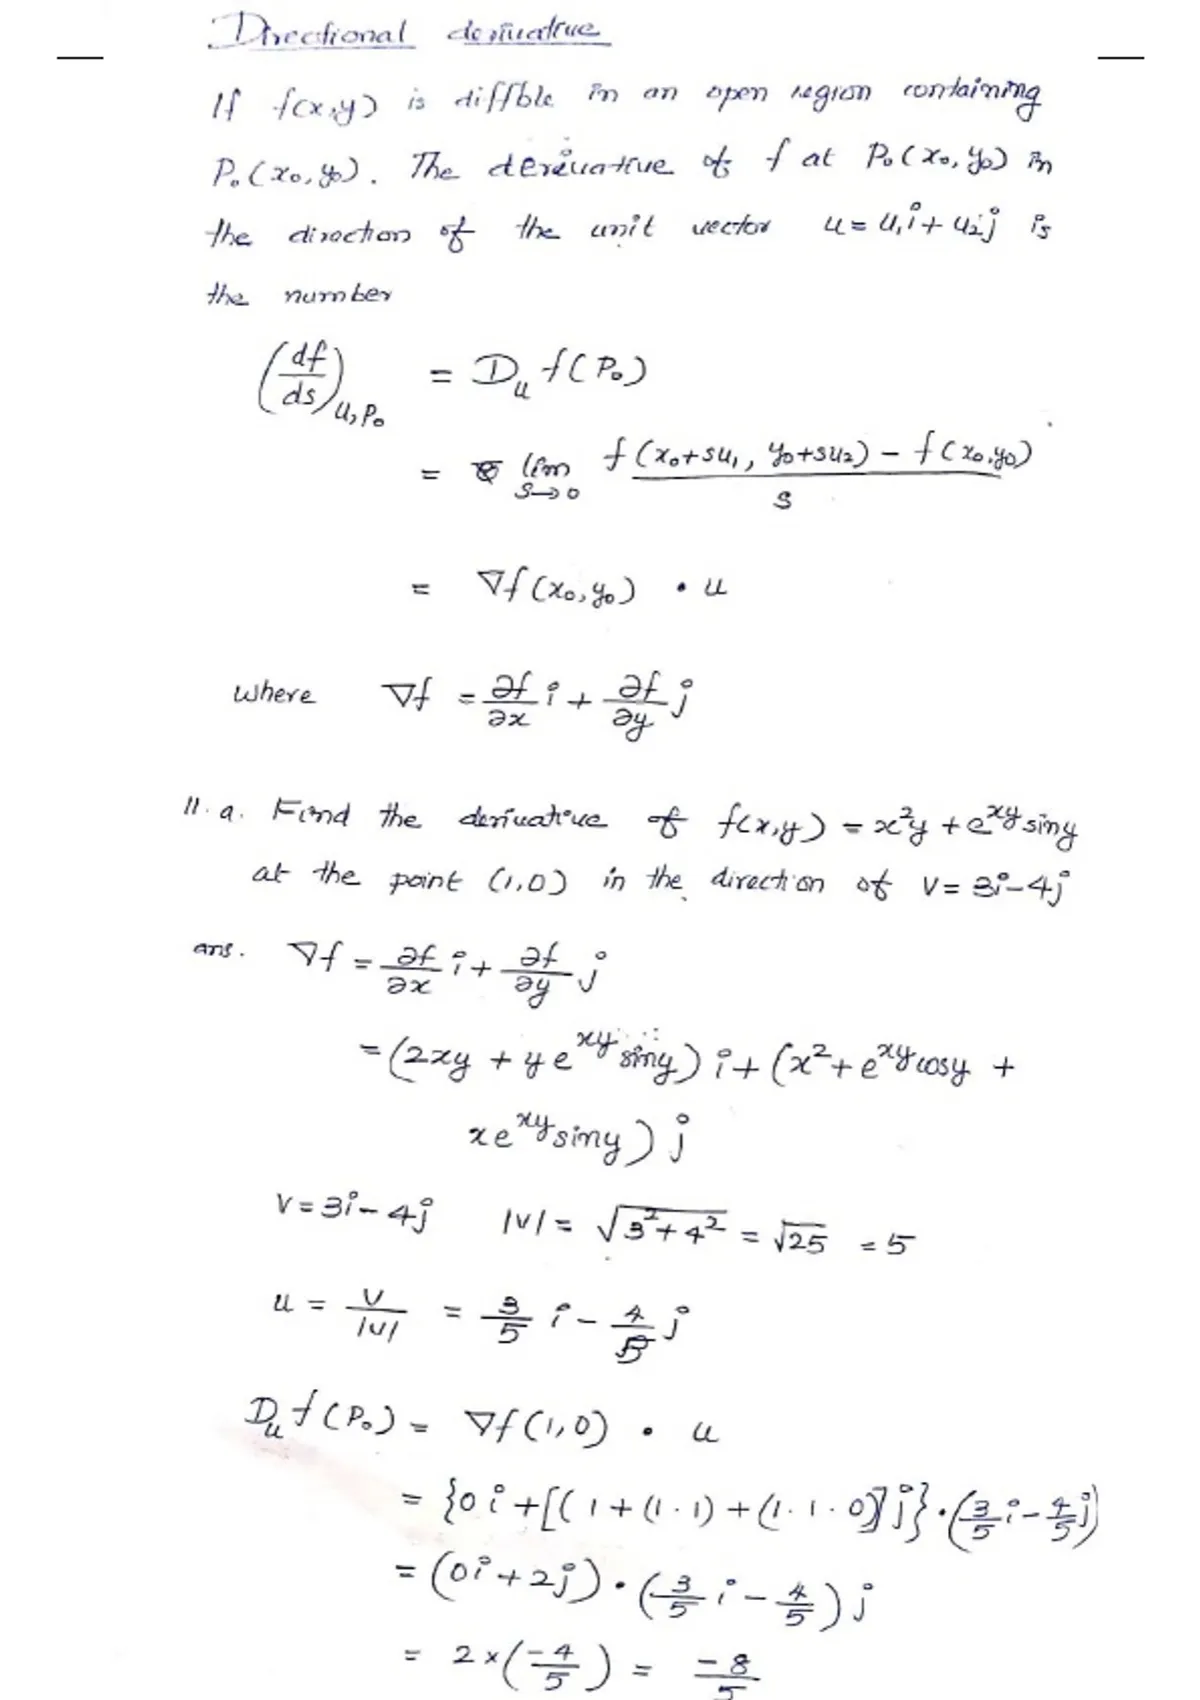 Directional derivative
If f(x,y) is diffble in an open region containing
P₀(x₀,y₀). The derivative of f at P₀(x₀,y₀) in
the direction of the unit vector u = u₁i + u₂j is
the number
(df/ds)u,P₀ = Duf(P₀)
= lim s→0 f(x₀+su₁, y₀+su₂) – f(x₀,y₀) / s
= ∇f(x₀,y₀) • u
where ∇f = ∂f/∂x i + ∂f/∂y j
11. a. Find the derivative of f(x,y) = x²y + e^xy siny
at the point (1,0) in the direction of v = 3i–4j
ans. ∇f = ∂f/∂x i + ∂f/∂y j
= (2xy + y e^xy siny) i + (x² + e^xy cosy +
x e^xy siny) j
v = 3i – 4j |v| = √3²+4² = √25 = 5
u = v/|v| = 3/5 i – 4/5 j
Duf(P₀) = ∇f(1,0) • u
= {0i + [(1 + (1·1) + (1·1·0)] j} • (3/5 i – 4/5 j)
= (0i + 2j) • (3/5 i – 4/5) j
= 2 × (–4/5) = –8/5